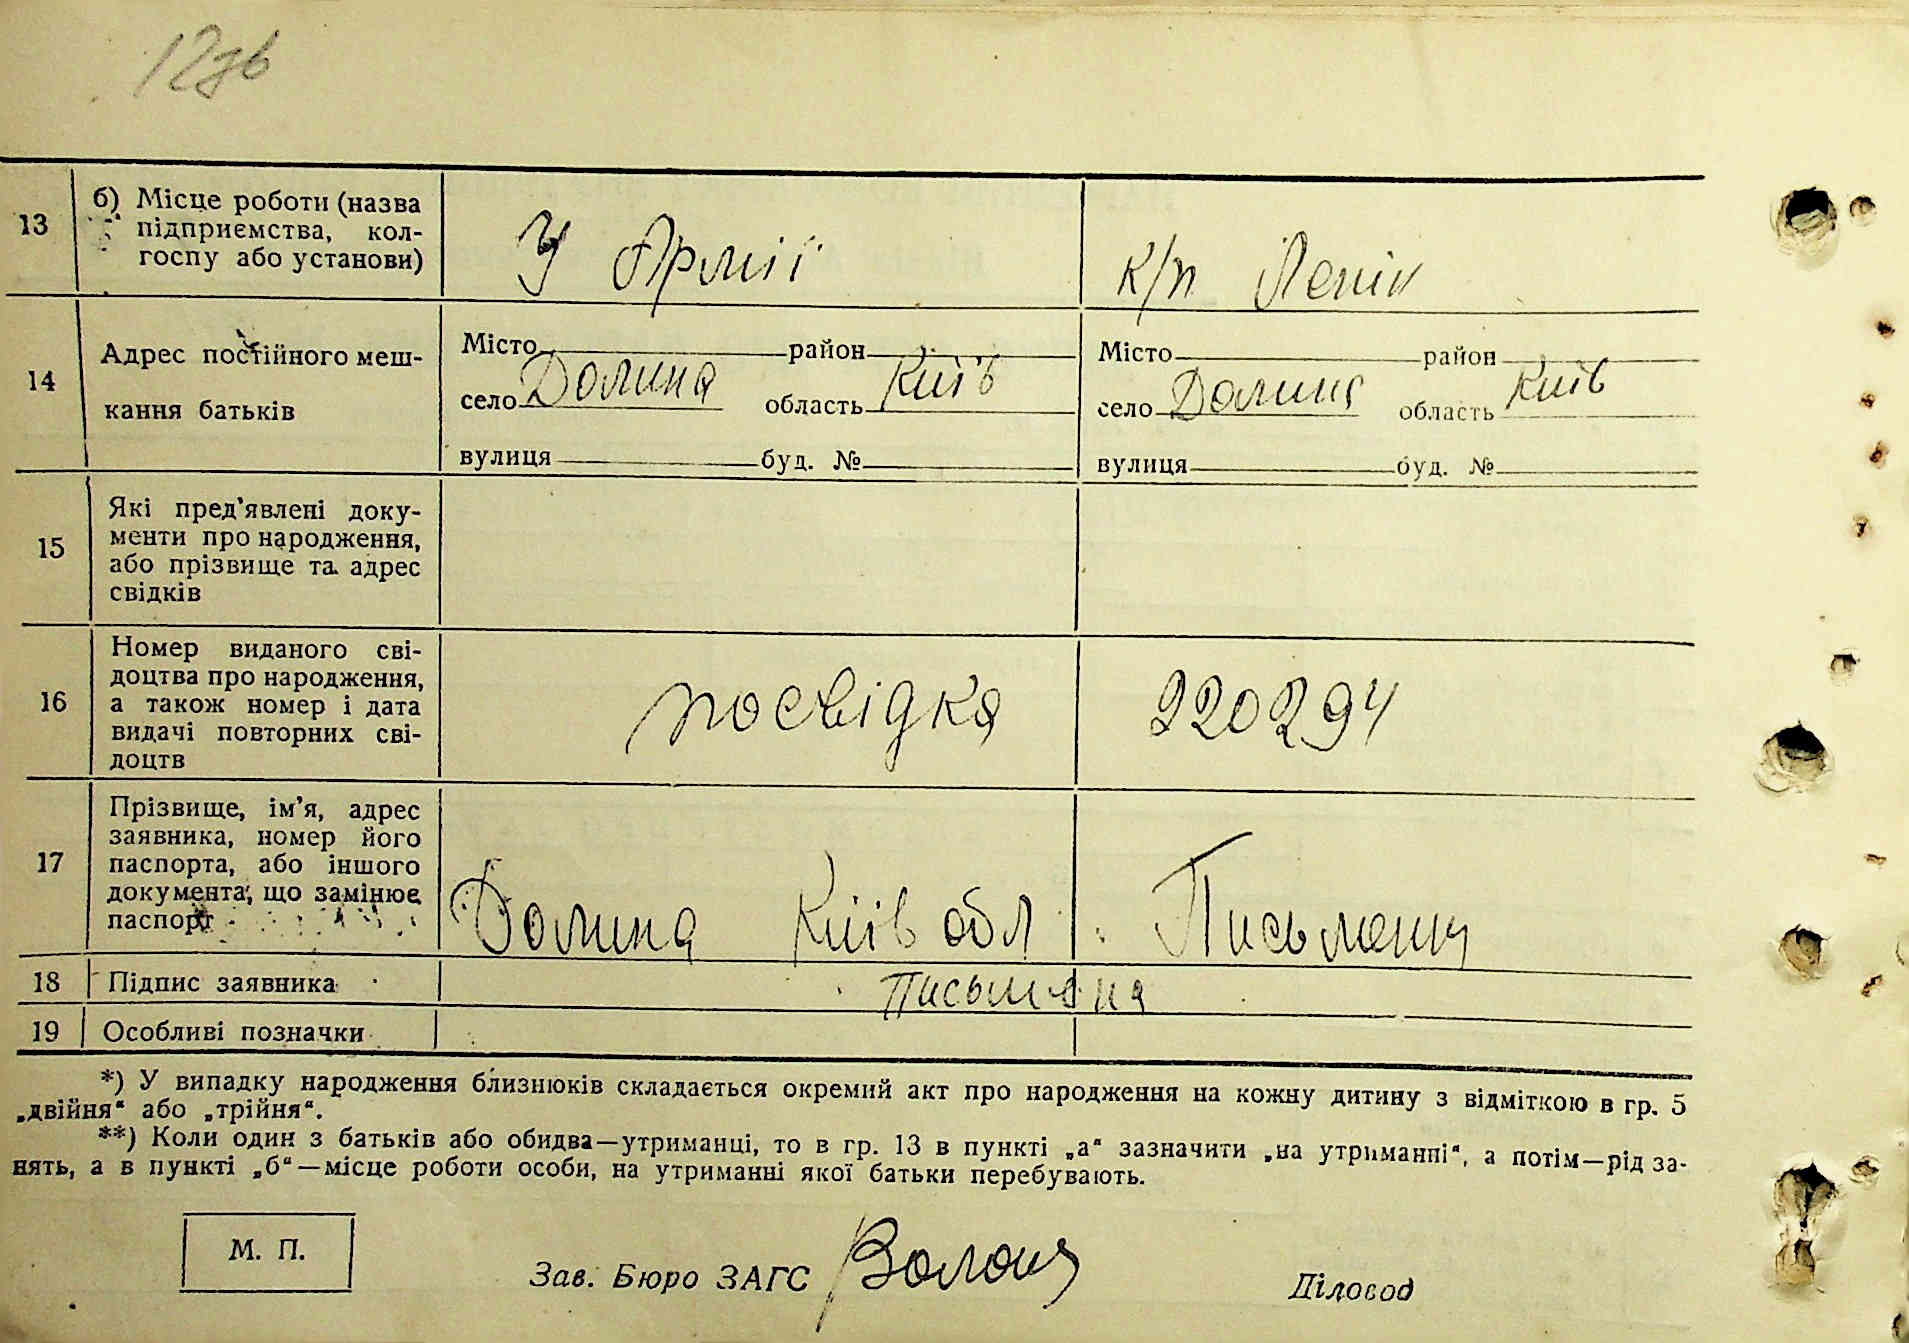 12зв
13
б) Місце роботи (назва
підприємства, кол-
госпу або установи)
У Армії
к/п Ленін
14
Адрес постійного меш-
кання батьків
Місто район
село Долина область Київ
вулиця буд. №
Місто район
село Долина область Київ
вулиця буд. №
15
Які пред'явлені доку-
менти про народження,
або прізвище та адрес
свідків
16
Номер виданого сві-
доцтва про народження,
а також номер і дата
видачі повторних сві-
доцтв
посвідка 220294
17
Прізвище, ім'я, адрес
заявника, номер його
паспорта, або іншого
документа, що замінює
паспорт
Долина Київ обл
18 Підпис заявника
Письмена
19 Особливі позначки
*) У випадку народження близнюків складається окремий акт про народження на кожну дитину з відміткою в гр. 5
„двійня“ або „трійня“.
**) Коли один з батьків або обидва—утриманці, то в гр. 13 в пункті „а“ зазначити „на утриманні“, а потім—рід за-
нять, а в пункті „б“—місце роботи особи, на утриманні якої батьки перебувають.
М. П.
Зав. Бюро ЗАГС
Діловод